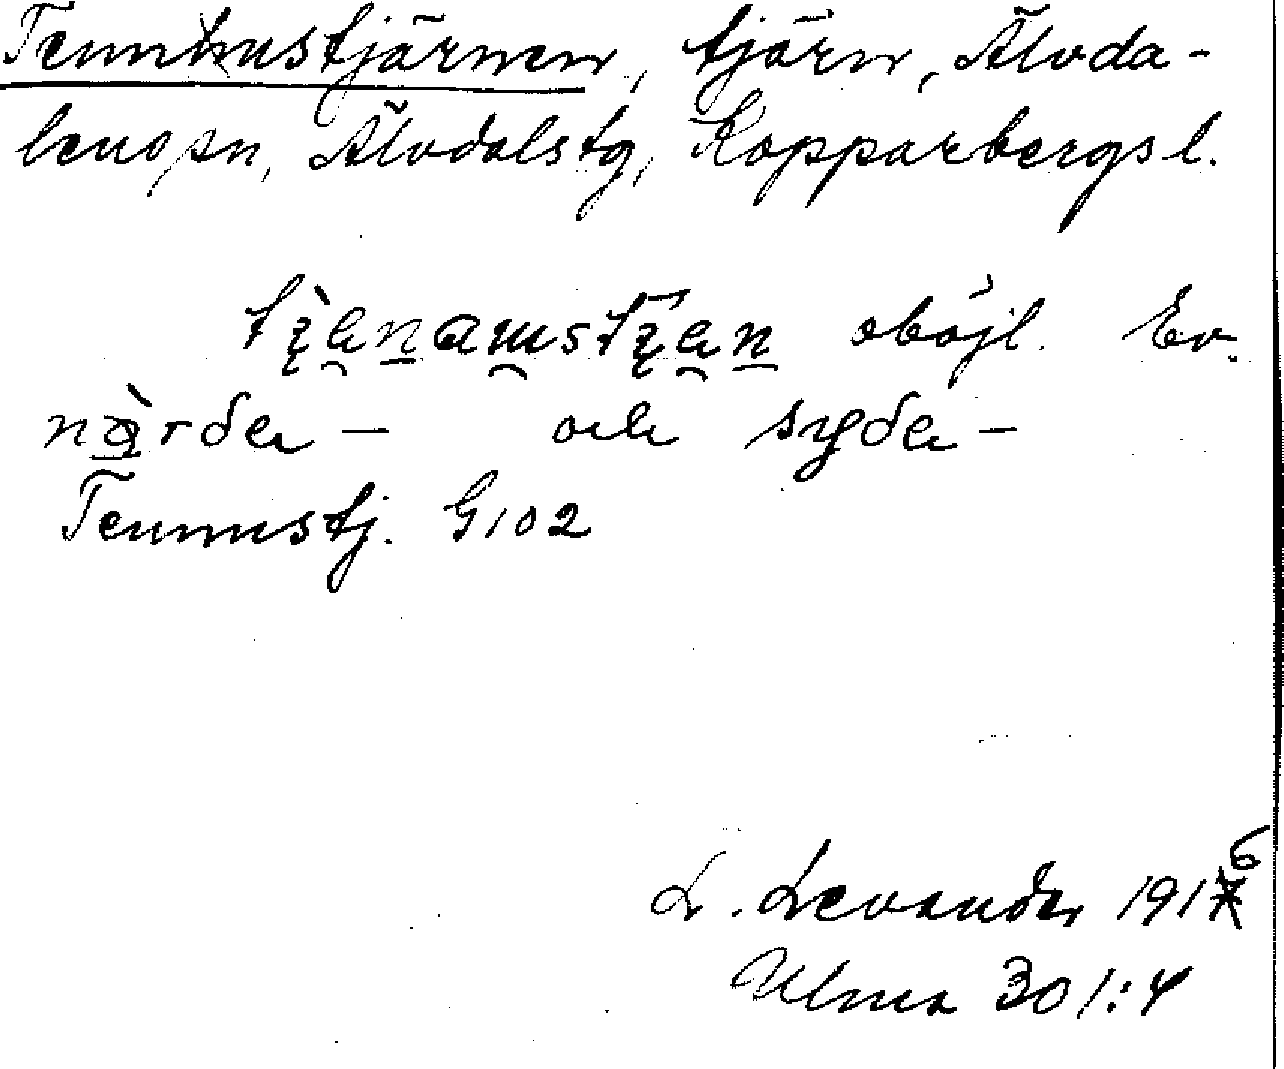 Tennhustjärnen, tjärn, Älvda-
lens sn, Älvdals tg, Kopparbergs l.
oböjl. Ev.
och syda-
Tennustj. G102
L. Levander 1916
Ulma 301:4